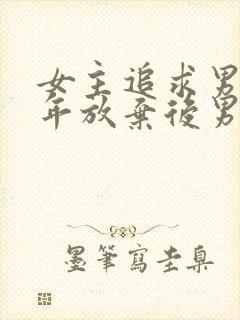 女主追求男
年放棄後男
墨筆寫圭臬